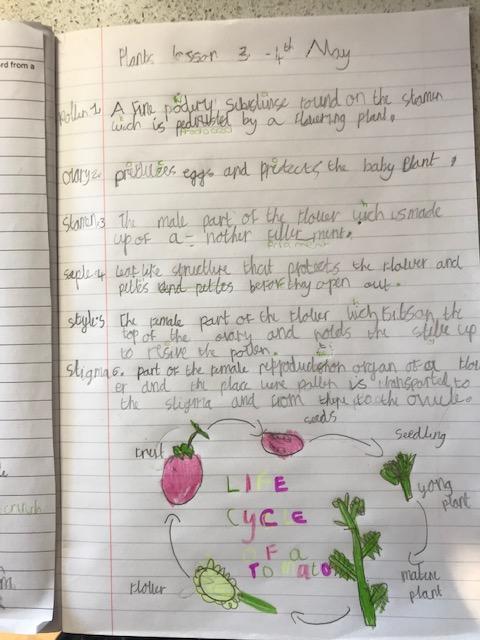 ord from a
Plants lesson 3 - 4th May
Pollen 1. A fine podery substinse found on the stamen
wich is by a flowering plant.
Ovary 2. produces eggs and protects, the baby plant.
Stamen 3 The male part of the flower wich is made
up of a - nother filler ment.
seple 4 leaf like structure that protects the flower and
pettles and pettles before thy open out.
style 5 The female part of the flower wich sits on the
top of the ovary and holds the up
to resive the pollen.
Stigma 6. part of the female reproduction organ of a flow
er and the place were pollen is transported to
the stigma and from there to the ovule.
seeds
fruit
seedling
LIFE
CYCLE
OF a
Tomato
yong
plant
mature
plant
flower
crunch